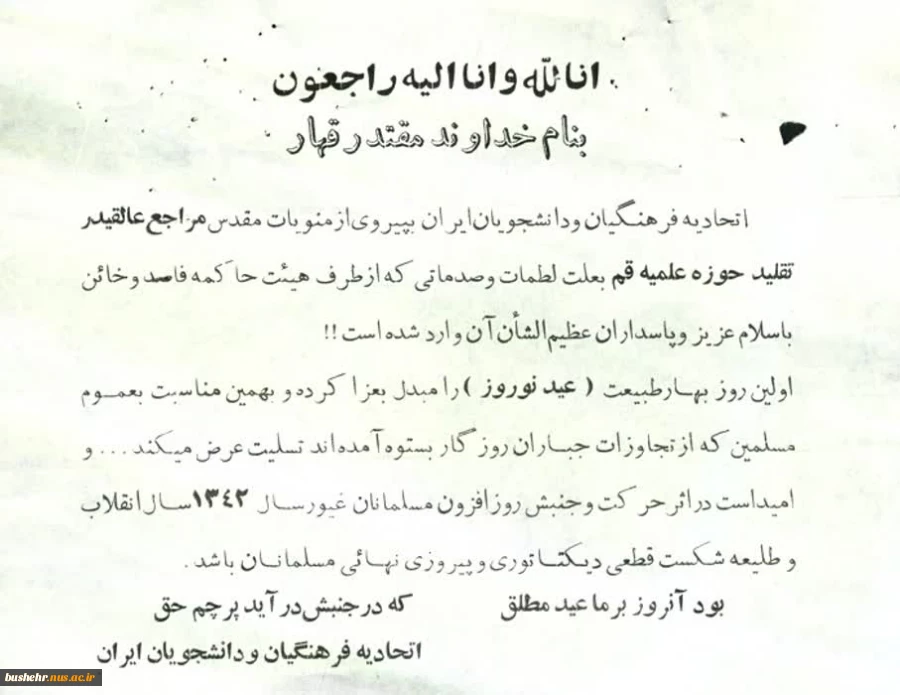 انا لله و انا الیه راجعون
بنام خداوند مقتدر قهار
اتحادیه فرهنگیان و دانشجویان ایران بپیروی از منویات مقدس مراجع عالقیدر
تقلید حوزه علمیه قم بعلت لطمات و صدماتی که از طرف هیئت حاکمه فاصد و خائن
باسلام عزیز و پاسداران عظیم الشأن آن وارد شده است !!
اولین روز بهار طبیعت ( عید نوروز ) را مبدل بعزا کرده و بهمین مناسبت بعموم
مسلمین که از تجاوزات جباران روزگار بستوه آمده‌اند تسلیت عرض میکند . . . و
امیداست در اثر حرکت و جنبش روزافزون مسلمانان غیور سال ۱۳۴۲ سال انقلاب
و طلیعه شکست قطعی دیکتاتوری و پیروزی نهائی مسلمانان باشد .
بود آنروز بر ما عید مطلق که در جنبش در آید پرچم حق
اتحادیه فرهنگیان و دانشجویان ایران
bushehr.nus.ac.ir